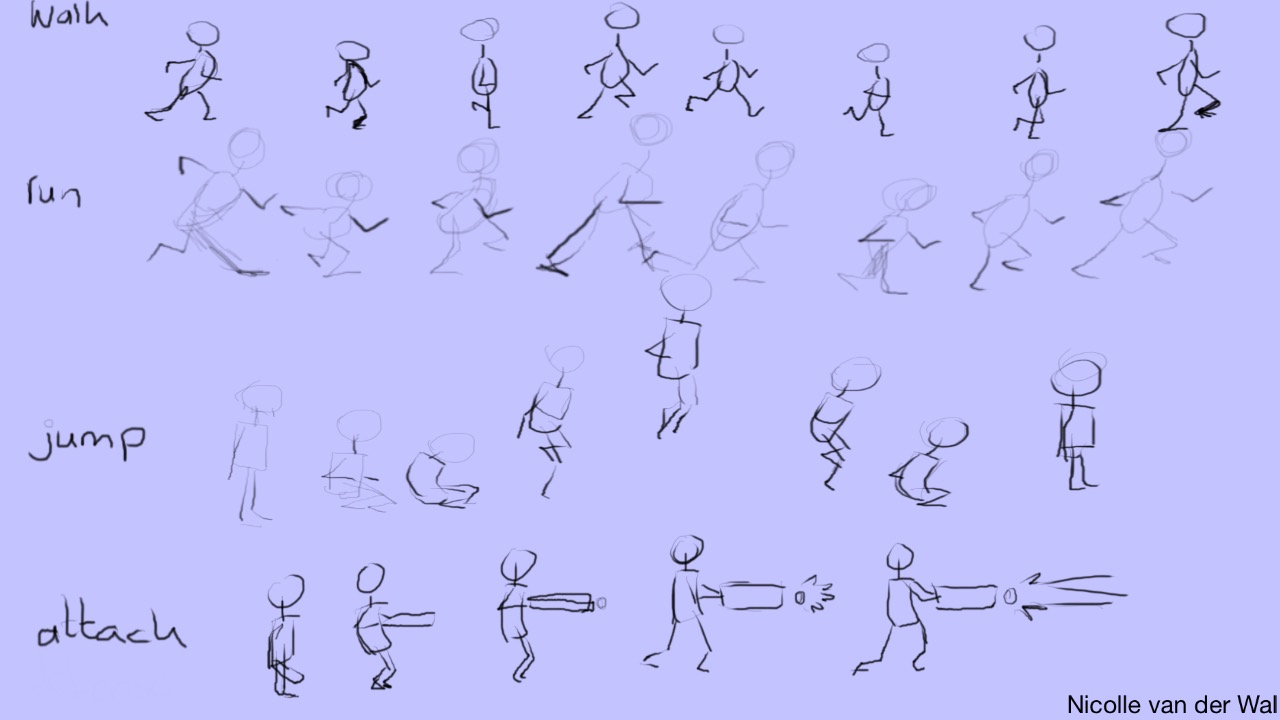 walk
run
jump
attack
Nicolle van der Wal